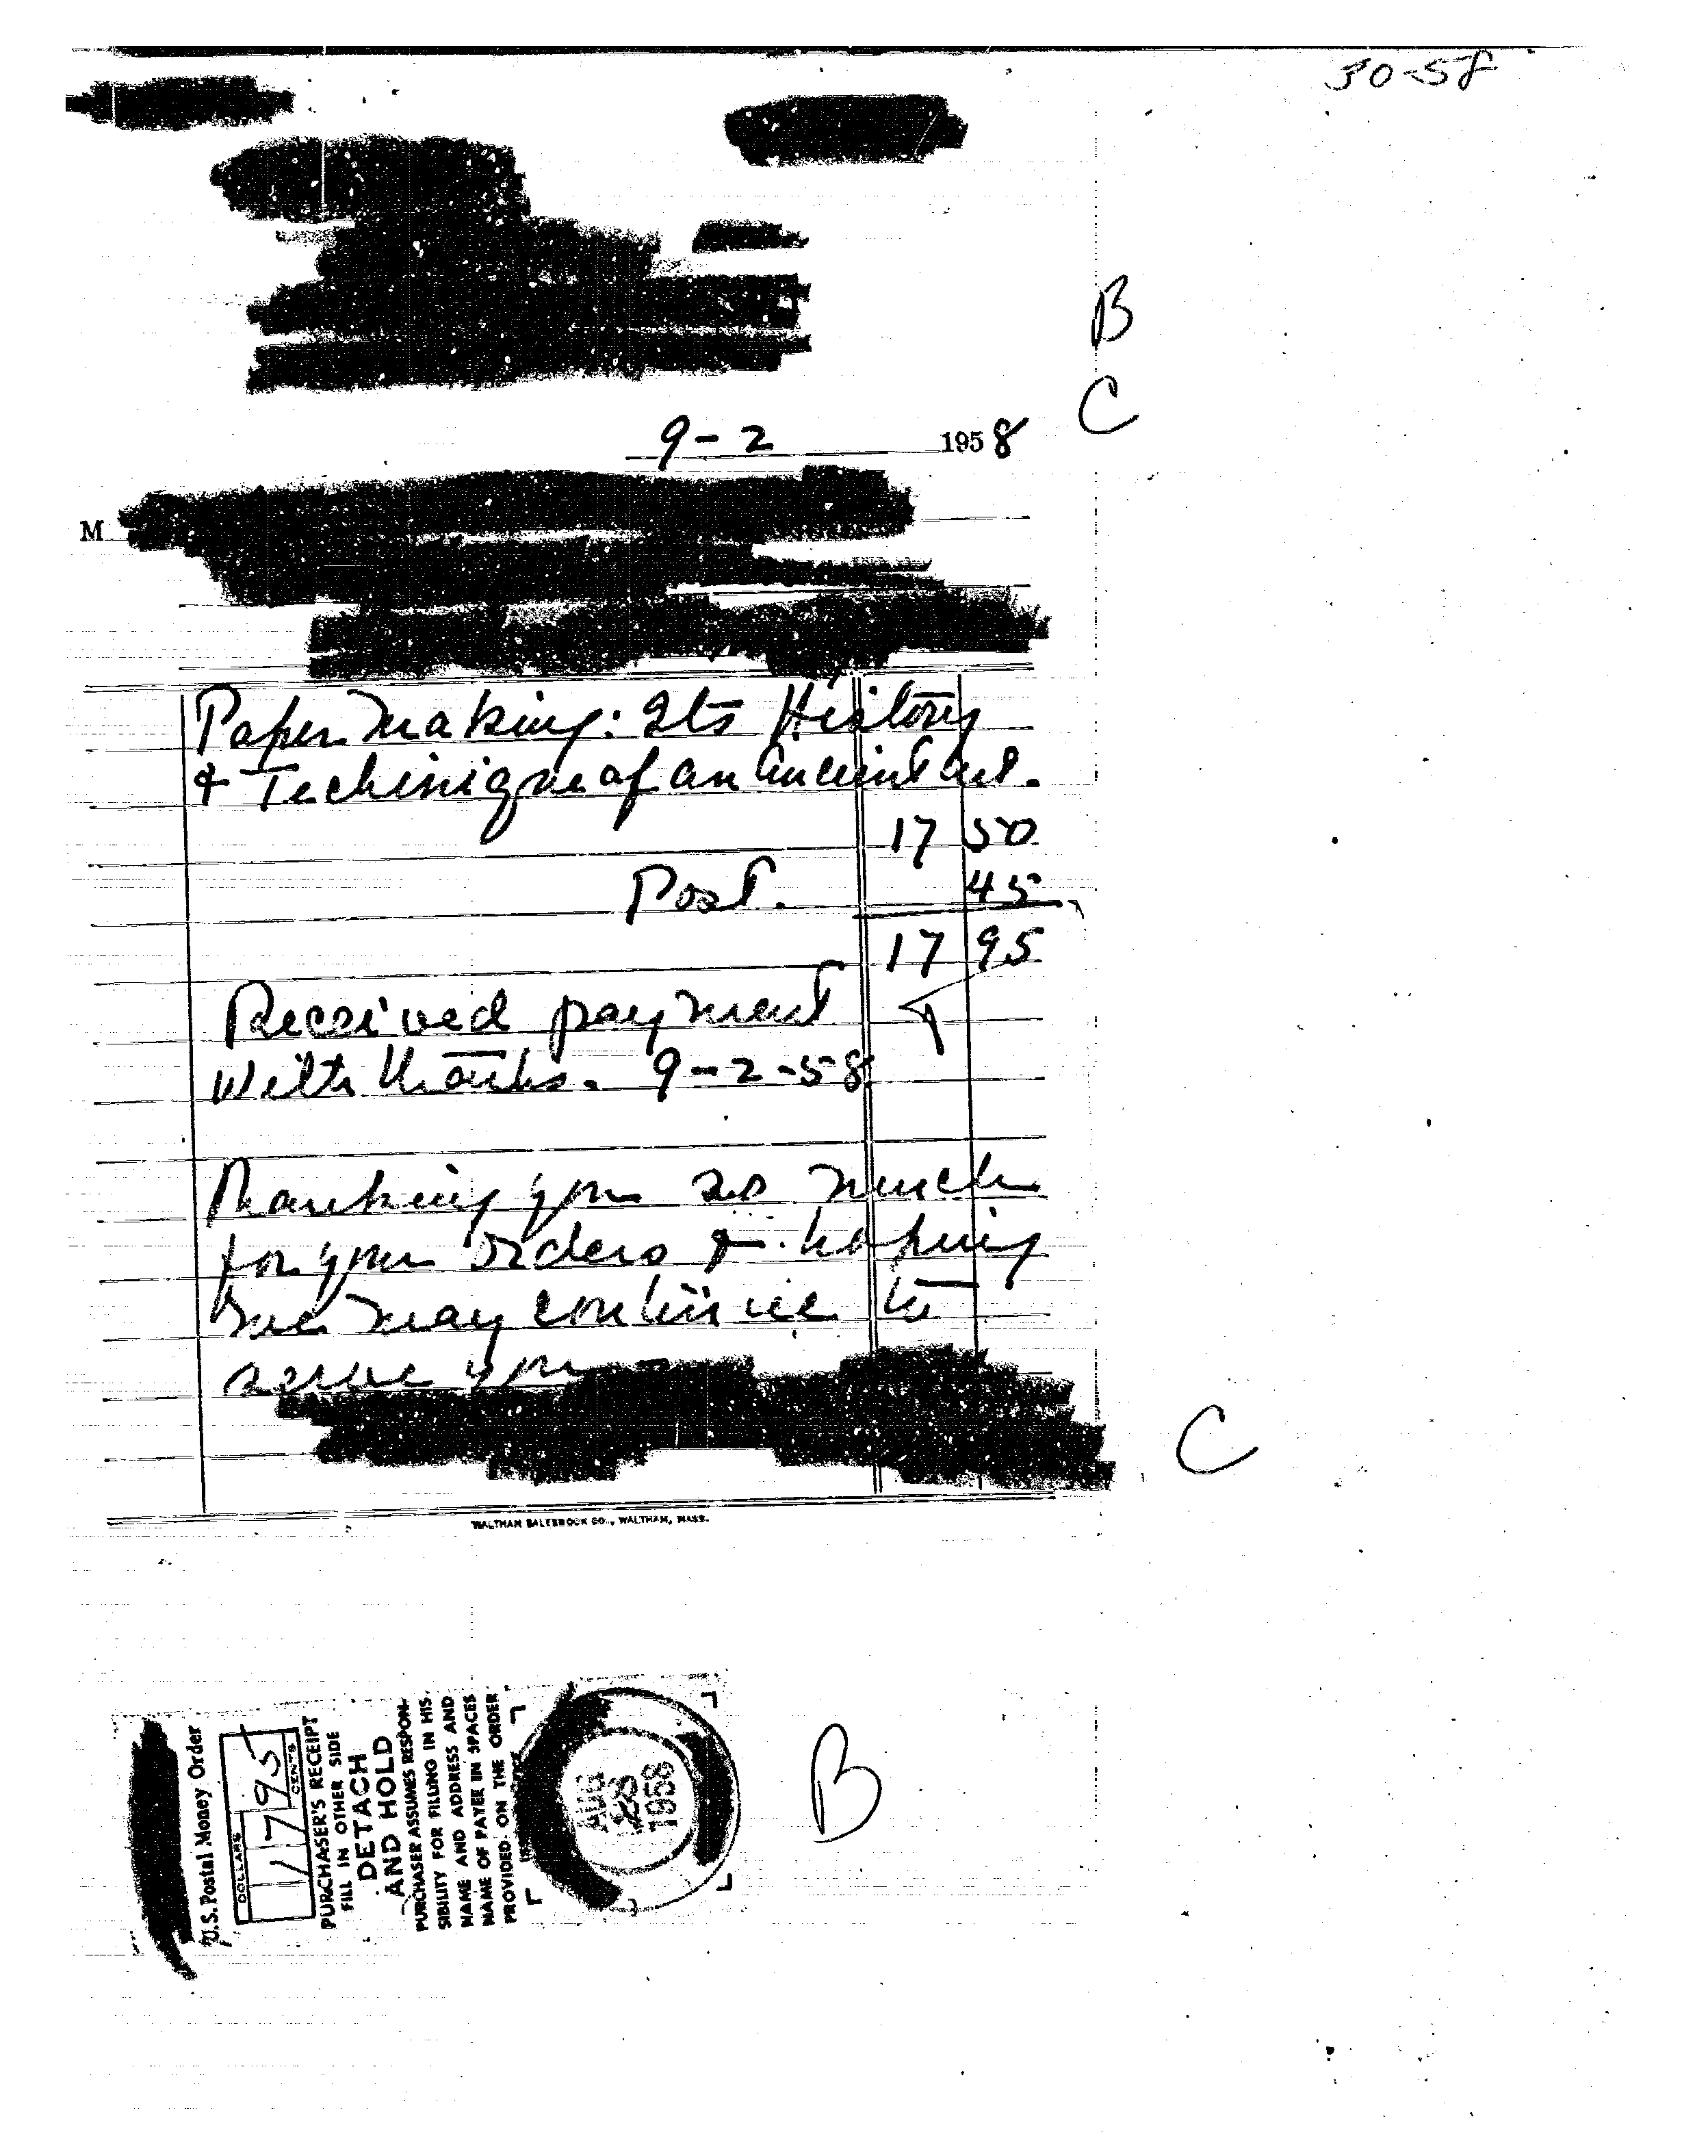 30-58
B
C
9-2 1958
M
Paper Making: Its History
& Techinique of an Ancient Art.
17 50
Post. 45
17 95
Received payment
with thanks. 9-2-58
Thanking you so much
for your orders & hoping
we may continue to
serve you
C
WALTHAM SALESBOOK CO., WALTHAM, MASS.
U.S. Postal Money Order
DOLLARS CENTS
17 95
PURCHASER'S RECEIPT
FILL IN OTHER SIDE
DETACH
AND HOLD
PURCHASER ASSUMES RESPON-
SIBILITY FOR FILING IN HIS
NAME AND ADDRESS AND
NAME OF PAYEE IN SPACES
PROVIDED ON THE ORDER
AUG
28
1958
B